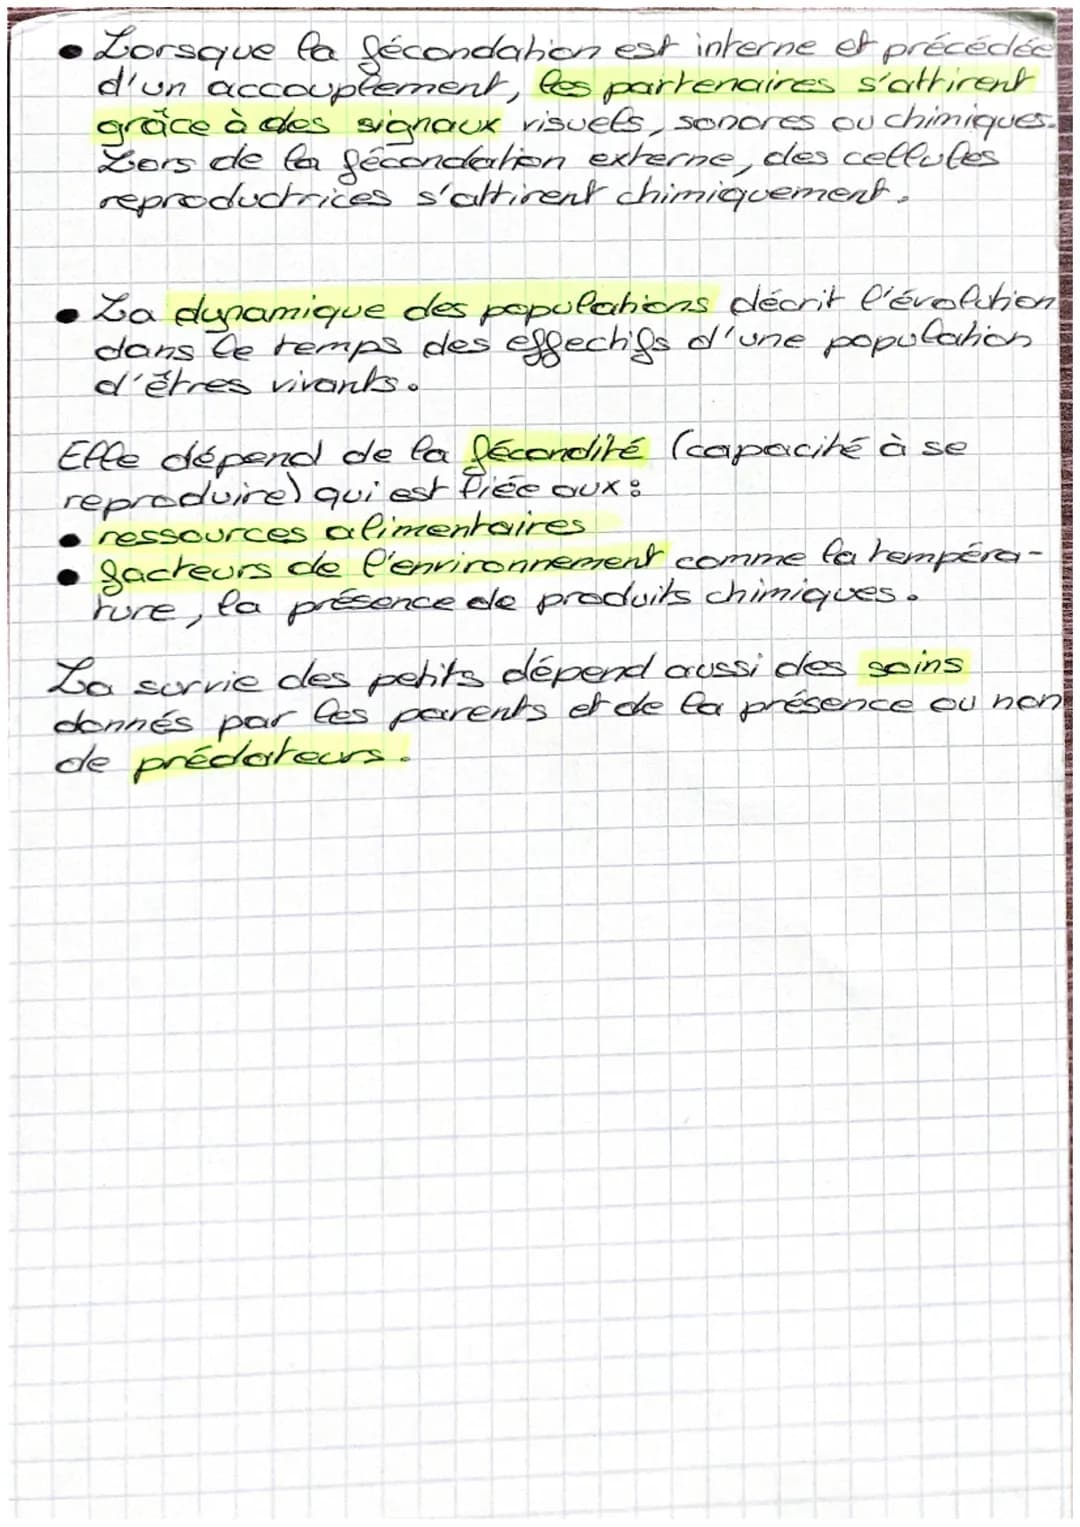 • Lorsque la fécondation est interne et précédée
d'un accouplement, les partenaires s'attirent
grâce à des signaux visuels, sonores ou chimiques.
Lors de la fécondation externe, des cellules
reproductrices s'attirent chimiquement.
• La dynamique des populations décrit l'évolution
dans le temps des effectifs d'une population
d'êtres vivants.
Elle dépend de la fécondité (capacité à se
reproduire) qui est liée aux :
• ressources alimentaires
• facteurs de l'environnement comme la tempéra-
ture, la présence de produits chimiques.
La survie des petits dépend aussi des soins
donnés par les parents et de la présence ou non
de prédateurs.